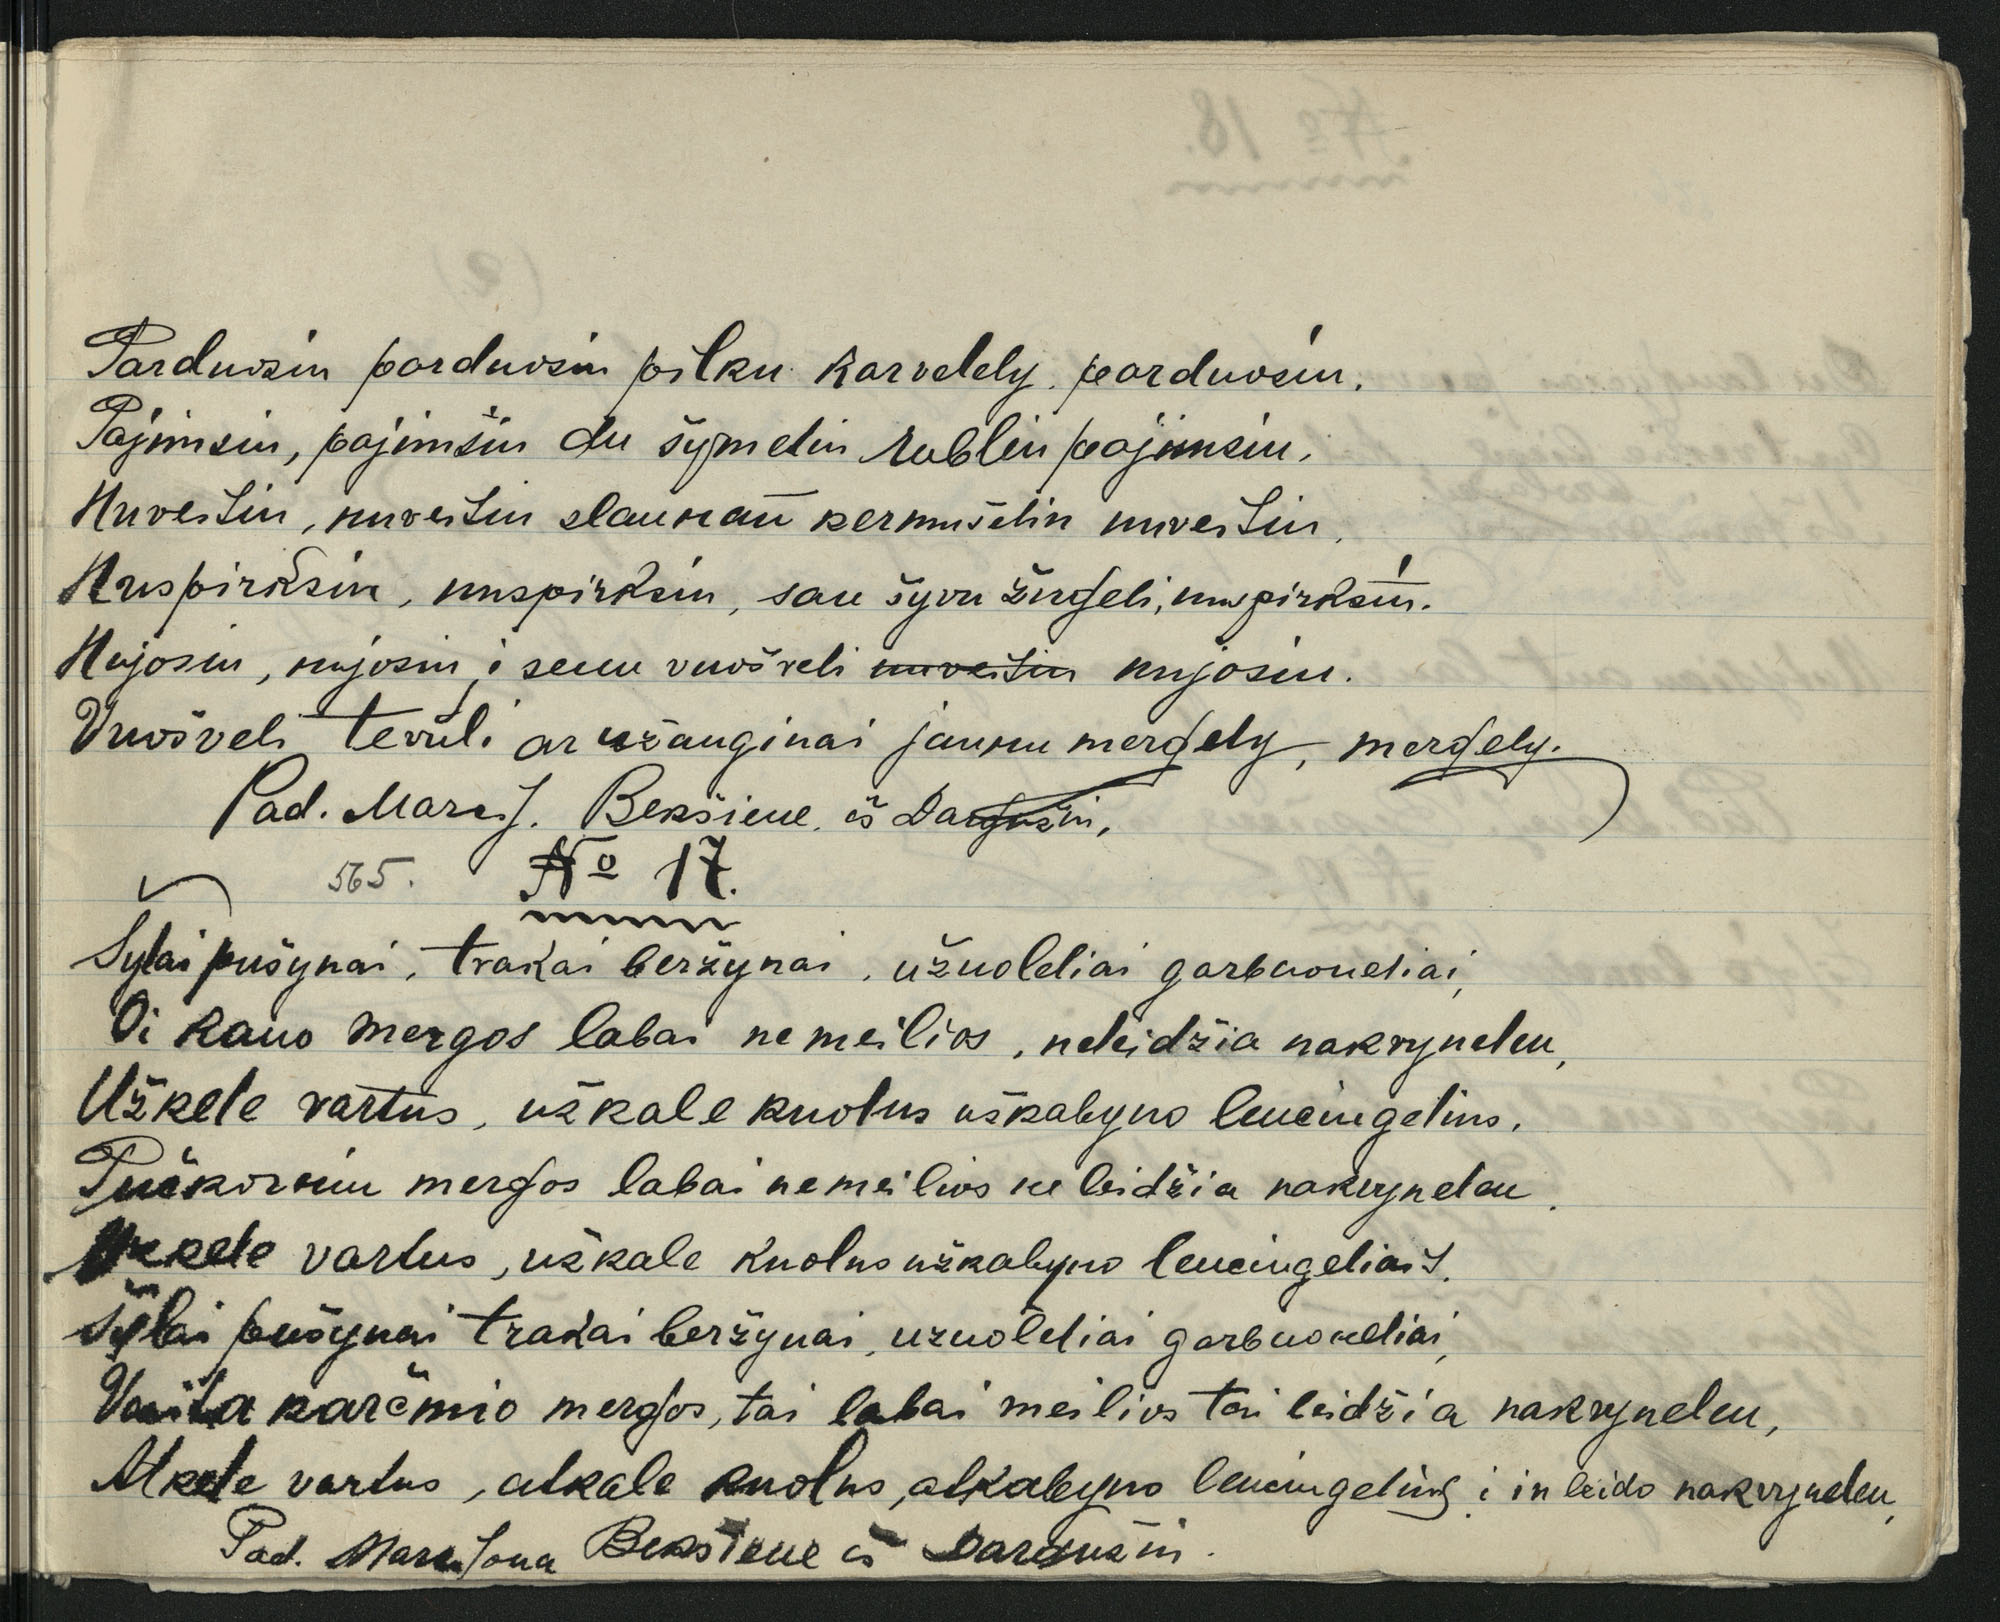 Parduosiu parduosiu pilku karvelely parduosiu.
Pajimsiu, pajimšiu du šymeliu rubliu pajimsiu.
Nuvešiu, nuvešiu slaunan kermušeliu nuvešiu.
Nuspirksiu, nuspirksiu, sau šyvu žirgeli, nuspirksiu.
Nujosiu, nujosiu, i senu vuošveli nuvešiu nujosiu.
Vuošveli tevuli ar užauginai jaunu mergely, mergely.
Pad. Marij. Bekšiene iš Dargužiu,
565. № 17.
Šylai pušynai, trakai beržynai, užuoleliai garbuoneliai,
Oi kauo mergos labai nemeilios, neleidžia nakvyneleu,
Užkele vartus, užkale kuolus užkabyno lenciugelius.
Puškorniu mergos labai nemeilios neleidžia nakvyneleu.
Užkele vartus, užkale kuolus užkabyno lenciugeliais.
Šylai pušynai trakai beržynai, užuoleliai garbuoneliai,
karčmio mergos, tai labai meilios tai leidžia nakvyneleu,
Atkele vartus, atkale kuolus, atkabyno lenciugelius i inleido nakvyneleu,
Pad. Marijona Bekšiene iš Dargužiu.